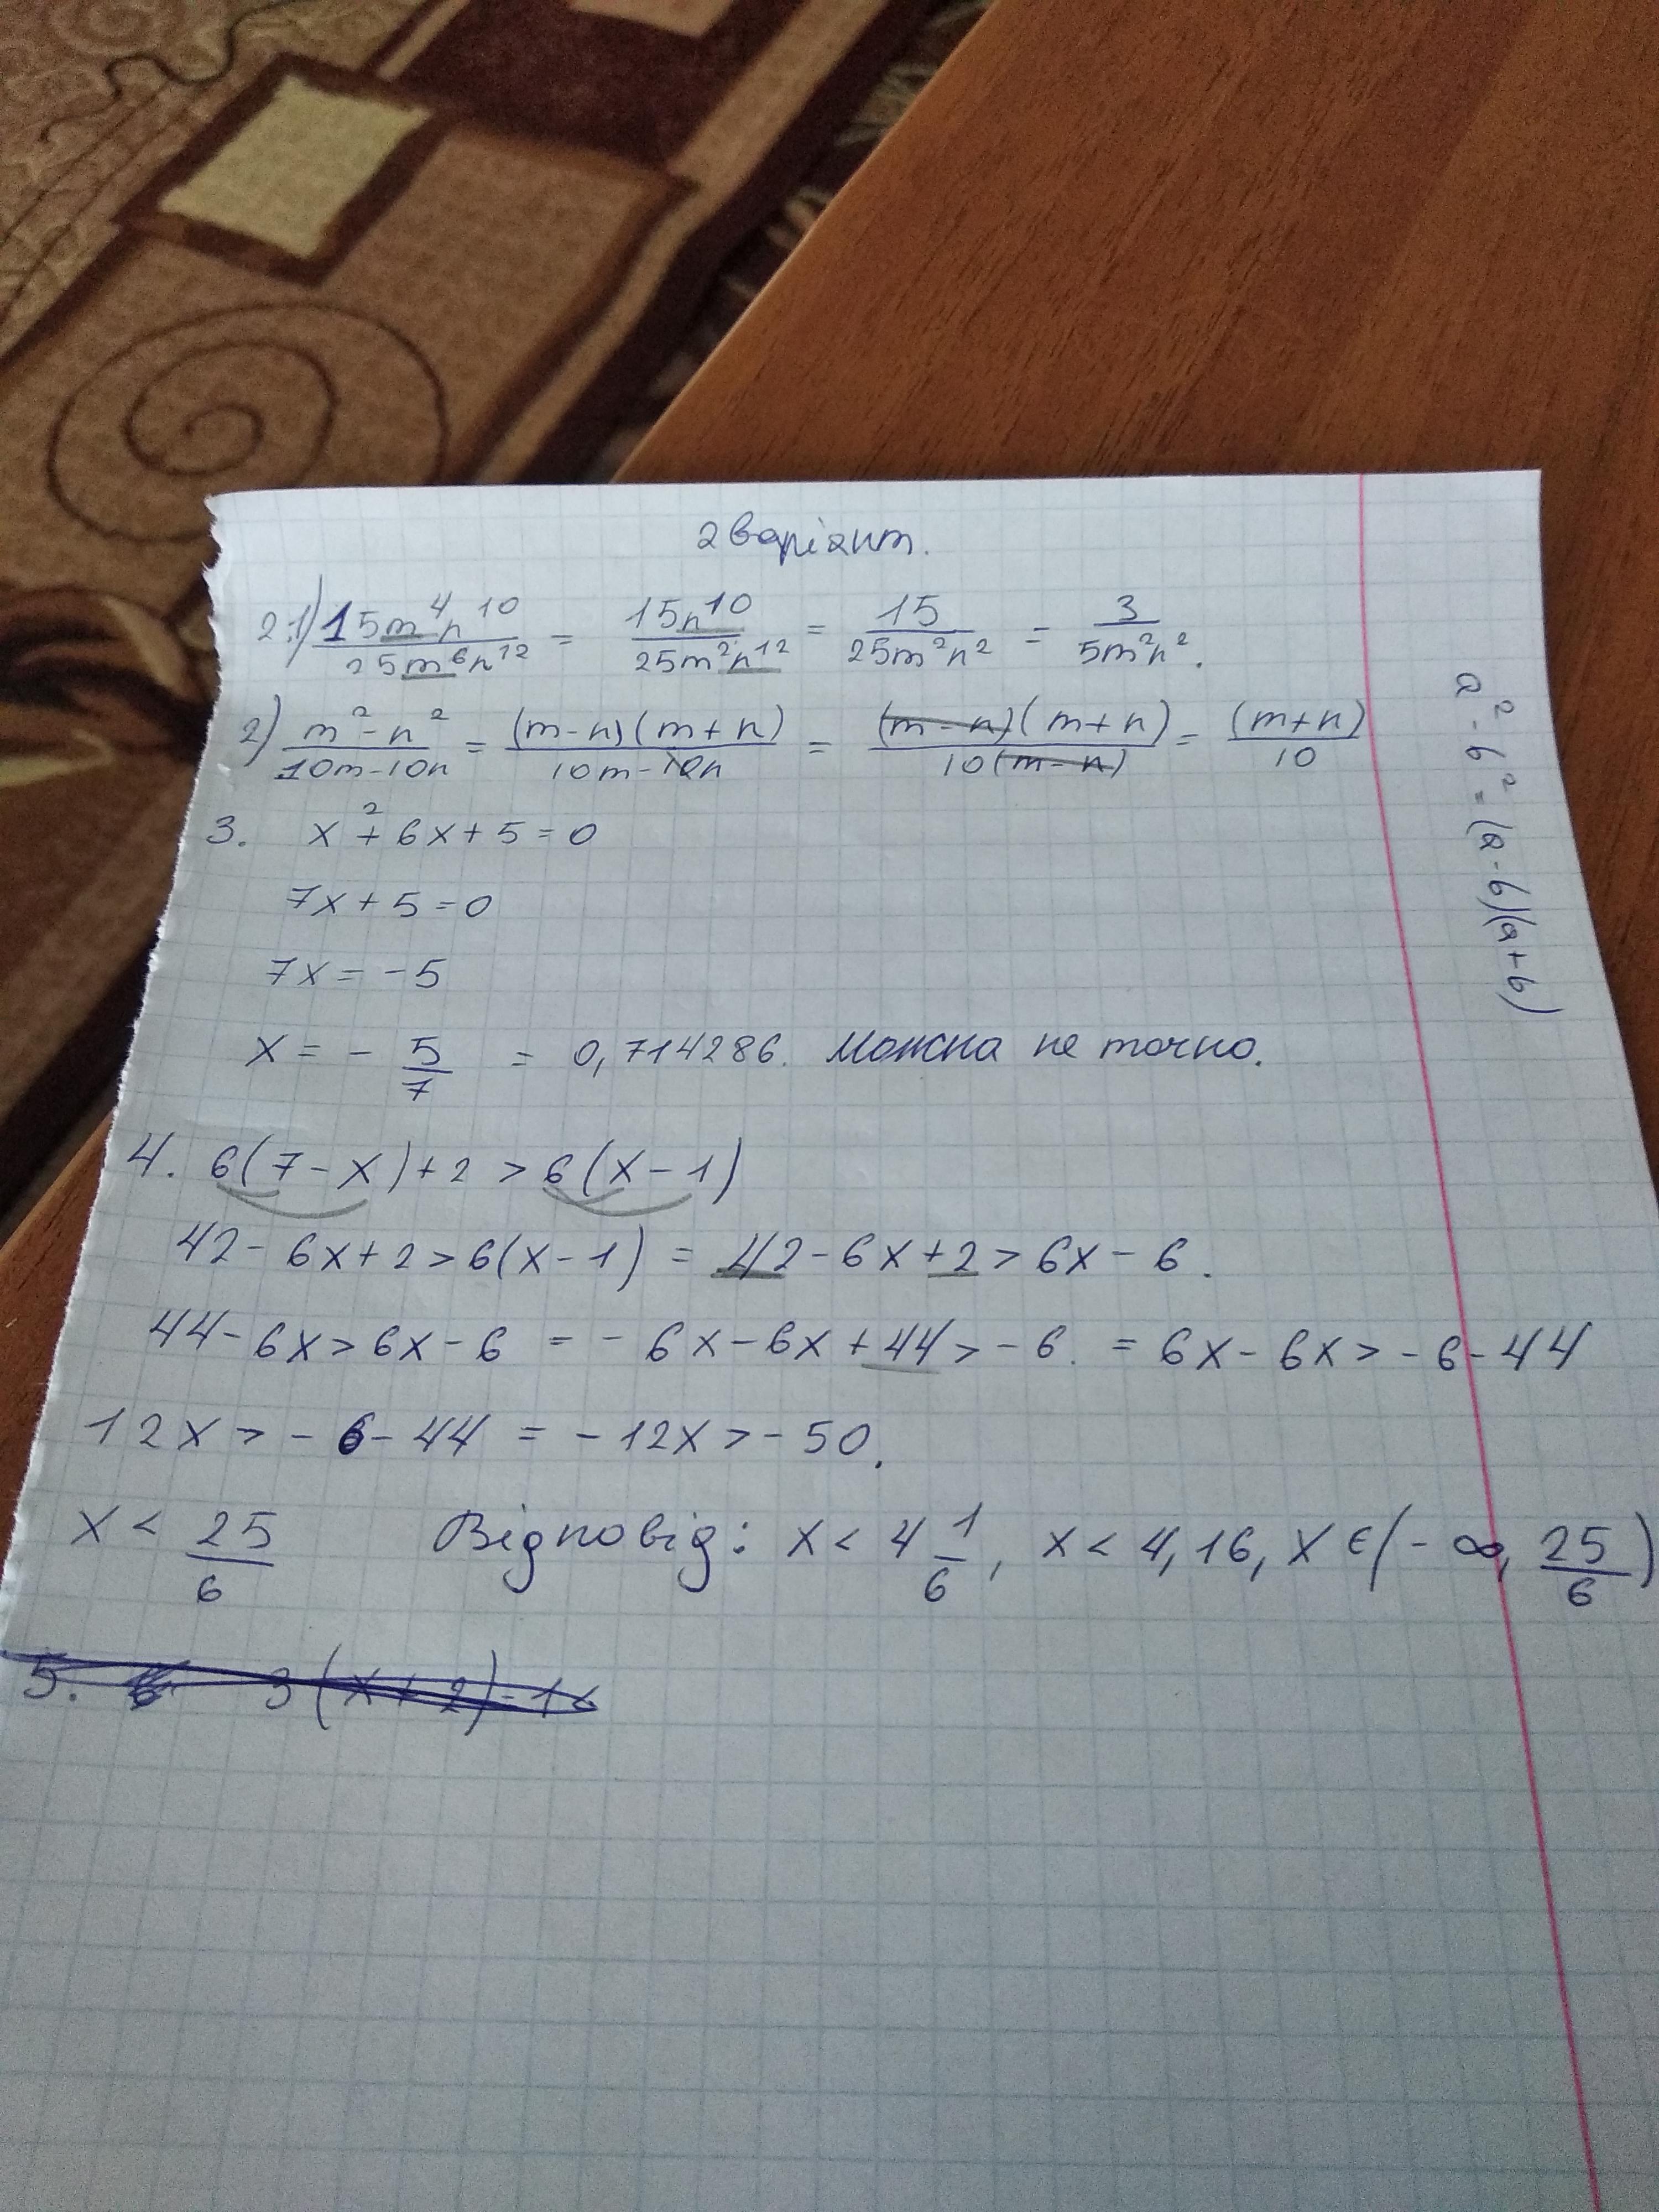 2 варіант.
2.1) 15m⁴n¹⁰/25m⁶n¹² = 15n¹⁰/25m²n¹² = 15/25m²n² = 3/5m²n².
2) m²-n²/10m-10n = (m-n)(m+n)/10m-10n = (m-n)(m+n)/10(m-n) = (m+n)/10
a²-b²=(a-b)(a+b)
3. x²+6x+5=0
7x+5=0
7x=-5
x=-5/7 = 0,714286. Можна не точно.
4. 6(7-x)+2>6(x-1)
42-6x+2>6(x-1) = 42-6x+2>6x-6.
44-6x>6x-6 = -6x-6x+44>-6. = 6x-6x>-6-44
12x>-6-44 = -12x>-50.
x<25/6 Відповід: x<4 1/6, x<4,16, x∈(-∞, 25/6)
5. 3(x+2)-1